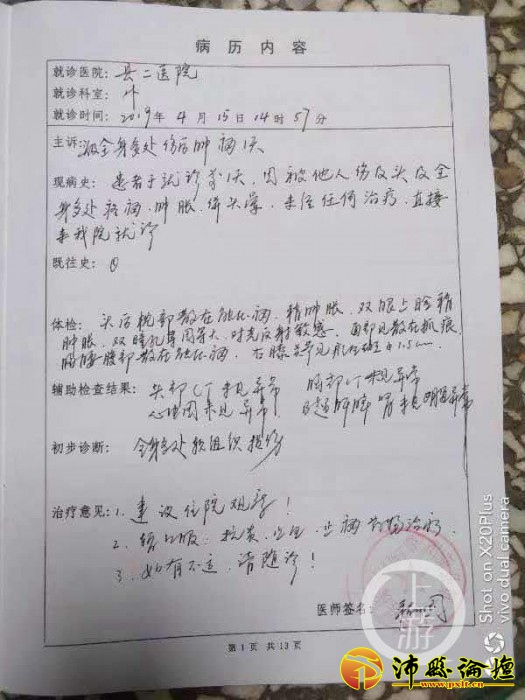 病历内容
就诊医院: 县二医院
就诊科室: 外
就诊时间: 2019年 4月 15日 14时 57分
主诉: 全身多处伤后肿痛1天
现病史: 患者于就诊前1天, 因被他人伤及头及全
身多处疼痛, 肿胀, 伴头晕, 未经任何治疗, 直接
来我院就诊
既往史:
体检: 头后枕部散在触压痛, 稍肿胀, 双眼上睑稍
肿胀, 双瞳孔等圆等大, 对光反射敏感, 面部见散在抓痕
胸腰腹部散在触压痛, 右膝关节见 1.5cm
辅助检查结果: 头部CT未见异常 胸部CT未见异常
心电图未见异常 未见明显异常
初步诊断: 全身多处软组织损伤
治疗意见: 1. 建议住院观察!
2. 口服: 抗炎, 止痛 治疗.
3. 如有不适, 请随诊!
医师签名:
第 1 页 共 13 页
上游
Shot on X20Plus
vivo dual camera
沛县论坛
www.pxlt.cn